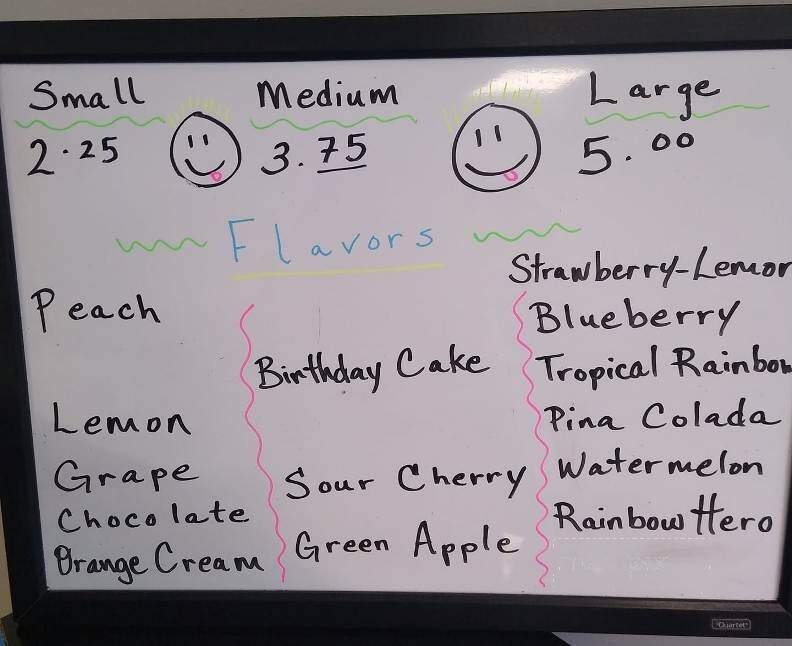 Small Medium Large
2.25 3.75 5.00
Flavors
Peach
Lemon
Grape
Chocolate
Orange Cream
Birthday Cake
Sour Cherry
Green Apple
Strawberry-Lemon
Blueberry
Tropical Rainbow
Pina Colada
Watermelon
Rainbow Hero
Quartet